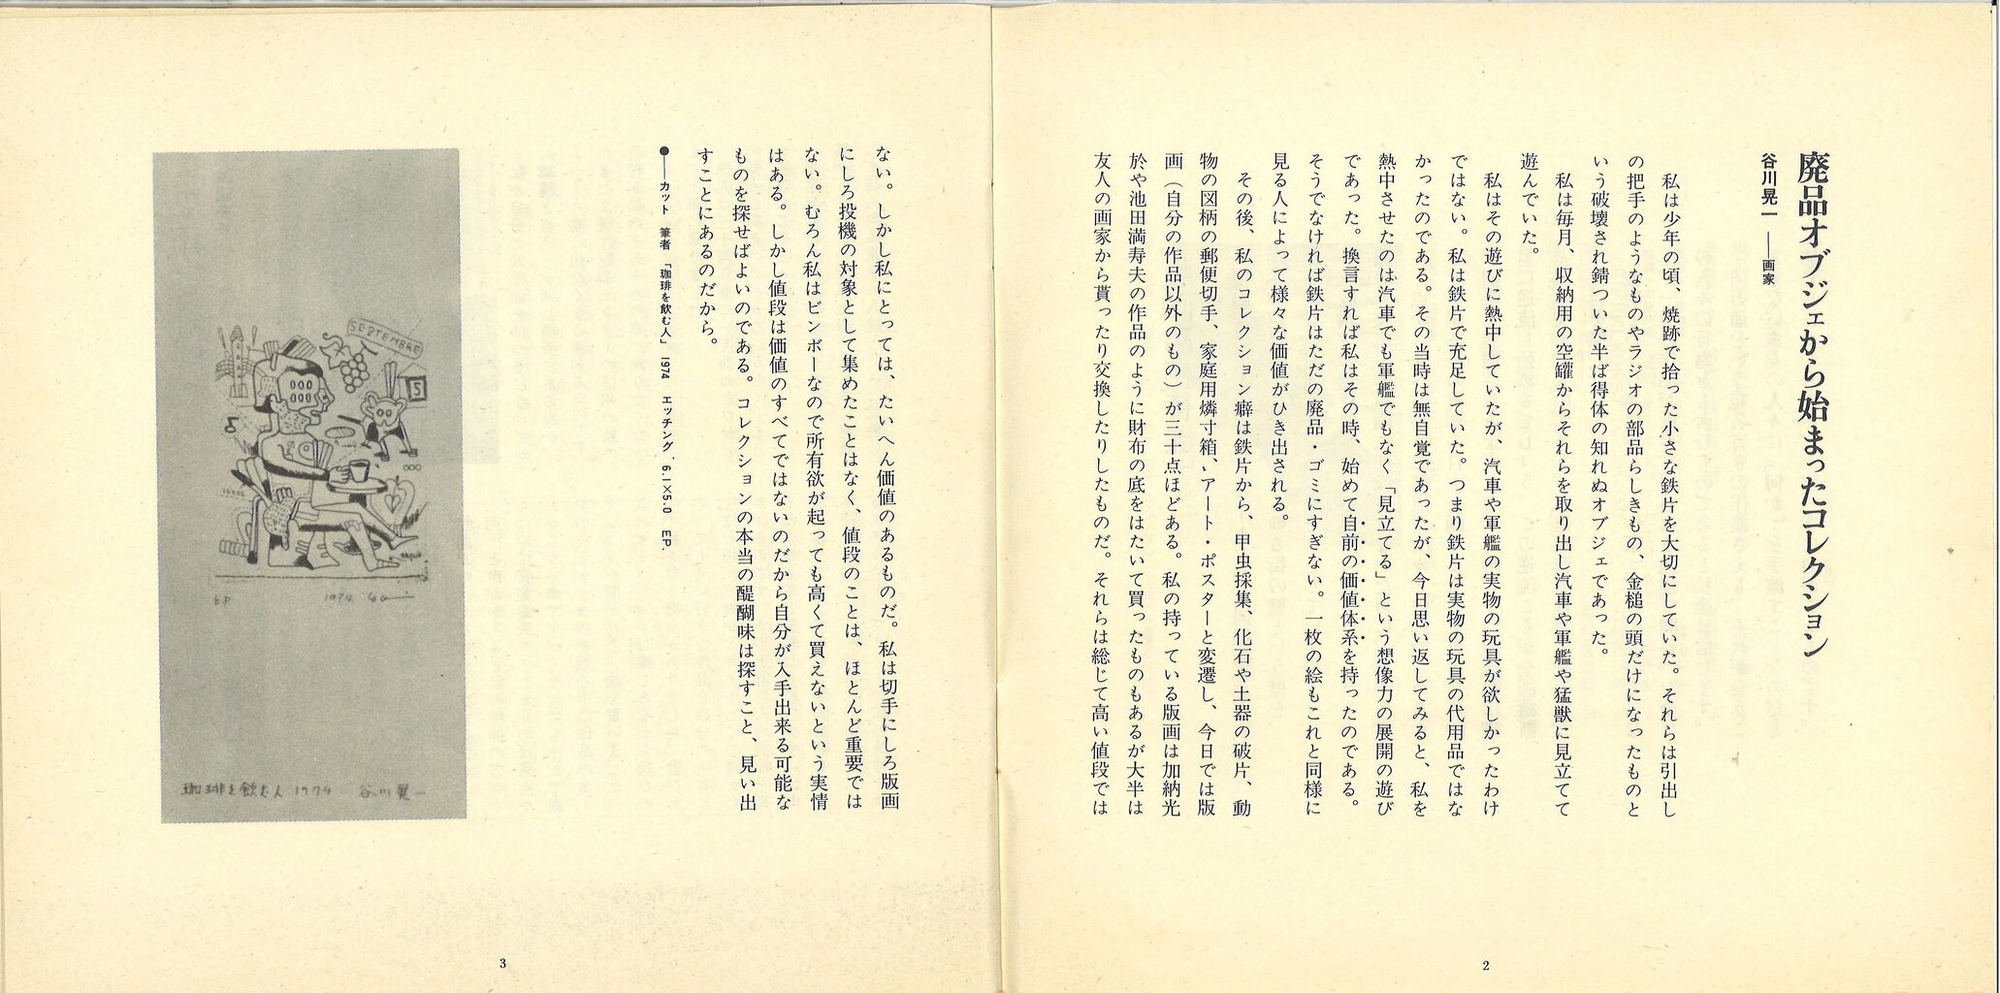 廃品オブジェから始まったコレクション
谷川晃一――画家
私は少年の頃、焼跡で拾った小さな鉄片を大切にしていた。それらは引出し
の把手のようなものやラジオの部品らしきもの、金槌の頭だけになったものと
いう破壊され錆ついた半ば得体の知れぬオブジェであった。
私は毎月、収納用の空罐からそれらを取り出し汽車や軍艦や猛獣に見立てて
遊んでいた。
私はその遊びに熱中していたが、汽車や軍艦の実物の玩具が欲しかったわけ
ではない。私は鉄片で充足していた。つまり鉄片は実物の玩具の代用品ではな
かったのである。その当時は無自覚であったが、今日思い返してみると、私を
熱中させたのは汽車でも軍艦でもなく「見立てる」という想像力の展開の遊び
であった。換言すれば私はその時、始めて自前の価値体系を持ったのである。
そうでなければ鉄片はただの廃品・ゴミにすぎない。一枚の絵もこれと同様に
見る人によって様々な価値がひき出される。
その後、私のコレクション癖は鉄片から、甲虫採集、化石や土器の破片、動
物の図柄の郵便切手、家庭用燐寸箱、アート・ポスターと変遷し、今日では版
画（自分の作品以外のもの）が三十点ほどある。私の持っている版画は加納光
於や池田満寿夫の作品のように財布の底をはたいて買ったものもあるが大半は
友人の画家から貰ったり交換したりしたものだ。それらは総じて高い値段では
2
ない。しかし私にとっては、たいへん価値のあるものだ。私は切手にしろ版画
にしろ投機の対象として集めたことはなく、値段のことは、ほとんど重要では
ない。むろん私はビンボーなので所有欲が起っても高くて買えないという実情
はある。しかし値段は価値のすべてではないのだから自分が入手出来る可能な
ものを探せばよいのである。コレクションの本当の醍醐味は探すこと、見い出
すことにあるのだから。
●――カット 筆者 「珈琲を飲む人」 1974 エッチング 6.1×5.0 EP.
SEPTEMBRE
5
EP 1974
珈琲を飲む人 1974 谷川晃一
3